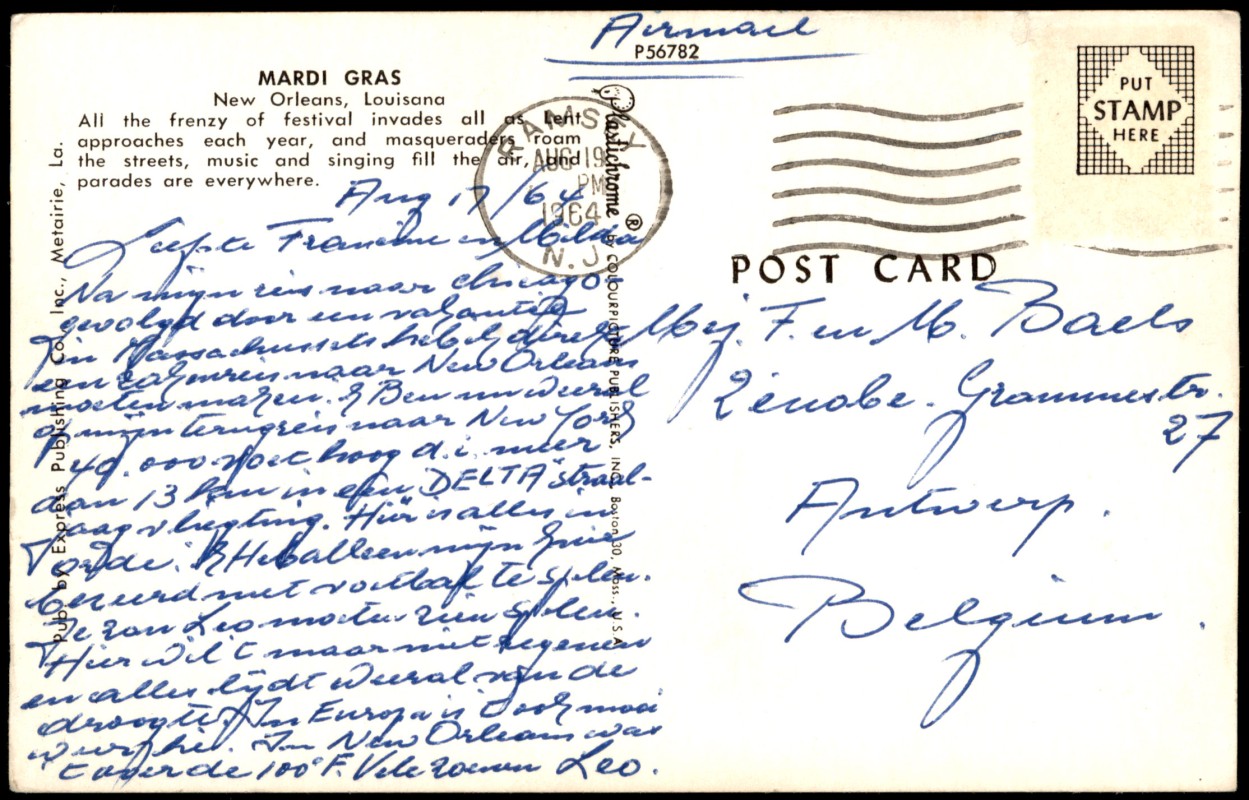 Airmail
P56782
MARDI GRAS
New Orleans, Louisana
All the frenzy of festival invades all as Lent
approaches each year, and masqueraders roam
the streets, music and singing fill the air, and
parades are everywhere.
Pub. by Express Publishing Co., Inc., Metairie, La.
Plastichrome ® by COLOURPICTURE PUBLISHERS, INC., Boston 30, Mass., U.S.A.
RAMSEY
AUG 19
PM
1964
N.J.
PUT
STAMP
HERE
POST CARD
Aug 17/64
Liefste Francine en Milda
Na mijn reis naar Chicago
gevolgd door een vakantie
in Massachussets heb ik direkt
een zakenreis naar New Orleans
moeten maken. Ik Ben nu weeral
op mijn terugreis naar New York
40.000 voet hoog d.i. meer
dan 13 km in een "DELTA" straal-
jaag vliegting. Hier is alles in
orde. Ik Heb alleen mijn knie
bezeerd met voetbal te spelen.
Je zou Leo moeten zien spelen.
Hier wil t maar niet regenen
en alles lijdt weeral van de
droogte. In Europa is t ook mooi
weer hé. In New Orleans was
t over de 100°F. Vele zoenen Leo.
Mej. F. en M. Baels
Zénobe-Grammestr.
27
Antwerp.
Belgium.